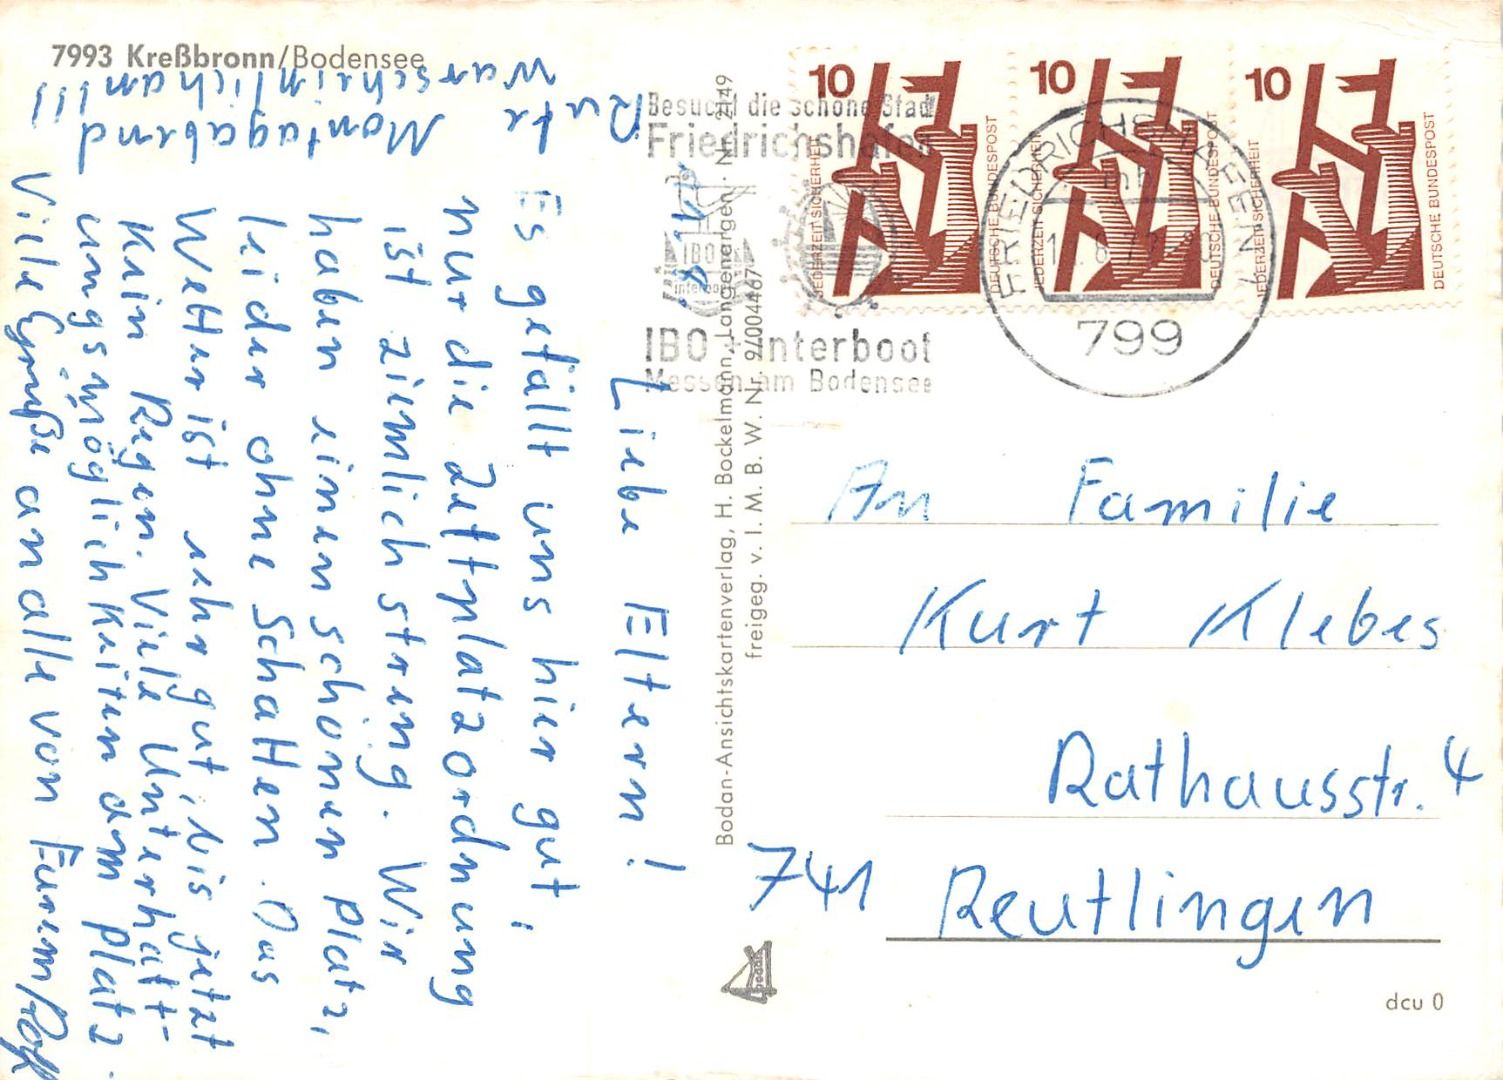 7993 Kreßbronn/Bodensee
1. 8.
Liebe Eltern!
Es gefällt uns hier gut,
nur die Zeltplatzordnung
ist ziemlich streng. Wir
haben einen schönen Platz,
leider ohne Schatten. Das
Wetter ist sehr gut, bis jetzt
Kein Regen. Viele Unterhalt-
ungsmöglichkeiten am Platz.
Viele Grüße an alle von Eurem Rolf
Rufe
warscheinlich am
Montagabend
an!!!
Bodan-Ansichtskartenverlag, H. Bockelmann, Langenargen · Nr. 2149
freigeg. v. I. M. B. W. Nr. 9/004467
Besucht die schöne Stadt
Friedrichshafen
IBO
interboot
IBO + interboot
Messen am Bodensee
10
JEDERZEIT SICHERHEIT
DEUTSCHE BUNDESPOST
10
JEDERZEIT SICHERHEIT
DEUTSCHE BUNDESPOST
10
JEDERZEIT SICHERHEIT
DEUTSCHE BUNDESPOST
FRIEDRICHSHAFEN
799
An Familie
Kurt Klebes
Rathausstr. 4
741 Reutlingen
bodan
dcu 0